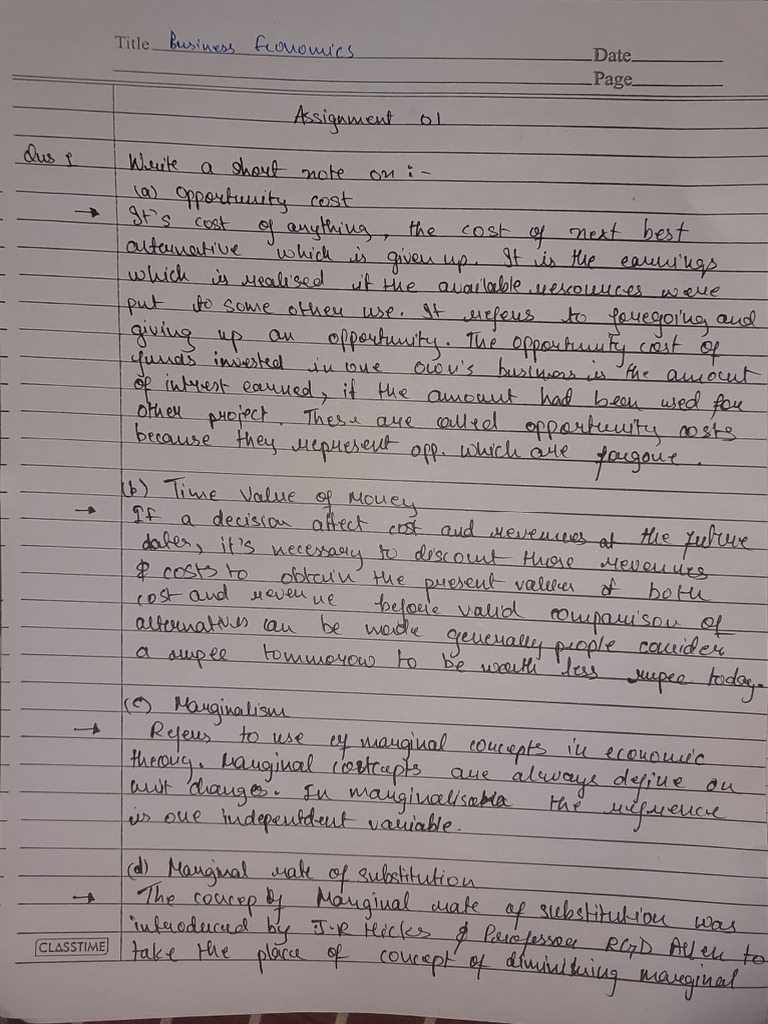 Title Business Economics
Date
Page
Assignment 01
Qus 1 Write a short note on :-
(a) Opportunity cost
→ It's cost of anything, the cost of next best
alternative which is given up. It is the earnings
which is realised if the available rescources were
put to some other use. It refers to foregoing and
giving up an opportunity. The opportunity cost of
funds invested in one own's business is the amount
of intrest earned, if the amount had been used for
other project. These are called opportunity costs
because they represent opp. which are forgone.
(b) Time Value of Money
→ If a decision affect cost and revenues at the future
dates, it's necessary to discount those revenues
& costs to obtain the present values of both
cost and revenue before valid comparison of
alternatives can be made generally people consider
a rupee tommorow to be worth less rupee today.
(c) Marginalism
→ Refers to use of marginal concepts in economic
theory. Marginal concepts are always define on
unit changes. In the refrence
is one independent variable.
(d) Marginal rate of substitution
→ The concep of Marginal rate of substitution was
introduced by J.R Hicks & Professor RGD Allen to
take the place of concept of diminishing marginal
CLASSTIME